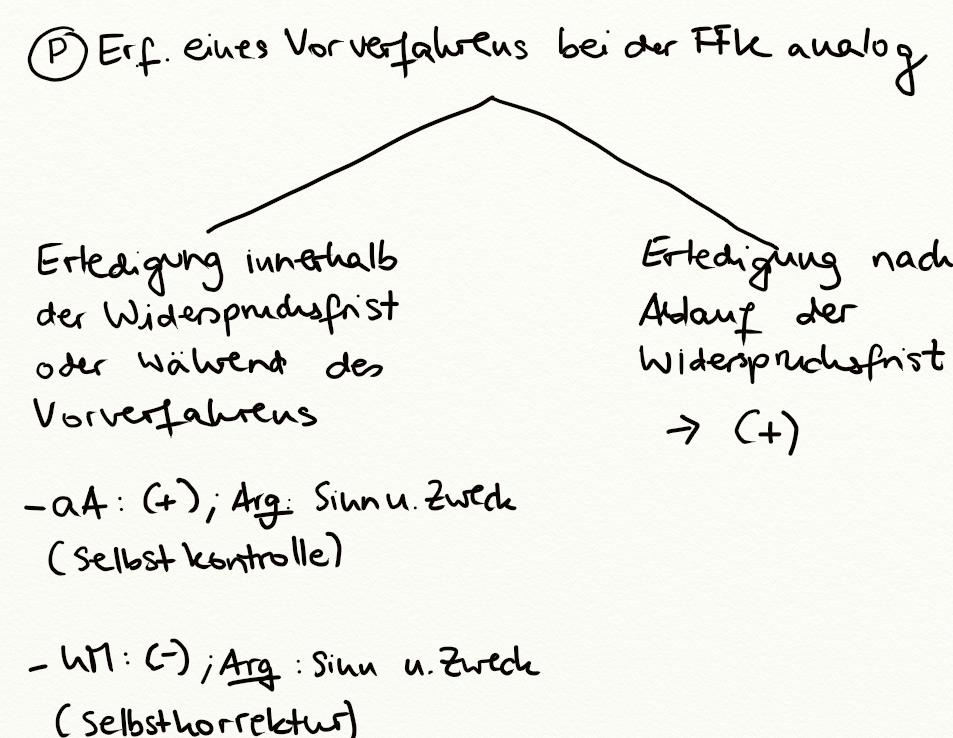 (P) Erf. eines Vorverfahrens bei der FFK analog
Erledigung innerhalb
der Widerspruchsfrist
oder während des
Vorverfahrens
- aA: (+); Arg: Sinn u. Zweck
(Selbstkontrolle)
- hM: (-); Arg: Sinn u. Zweck
(Selbstkorrektur)
Erledigung nach
Ablauf der
Widerspruchsfrist
→ (+)